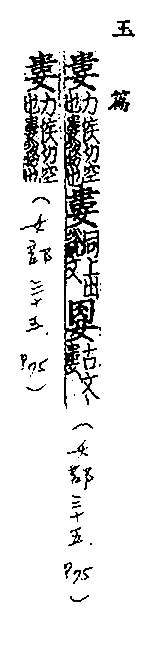 玉篇
婁 力侯切空也婁 婁 同上出說文 古文
(女部三十五. P75)
婁 力侯切空也婁
(女部三十五. P75)